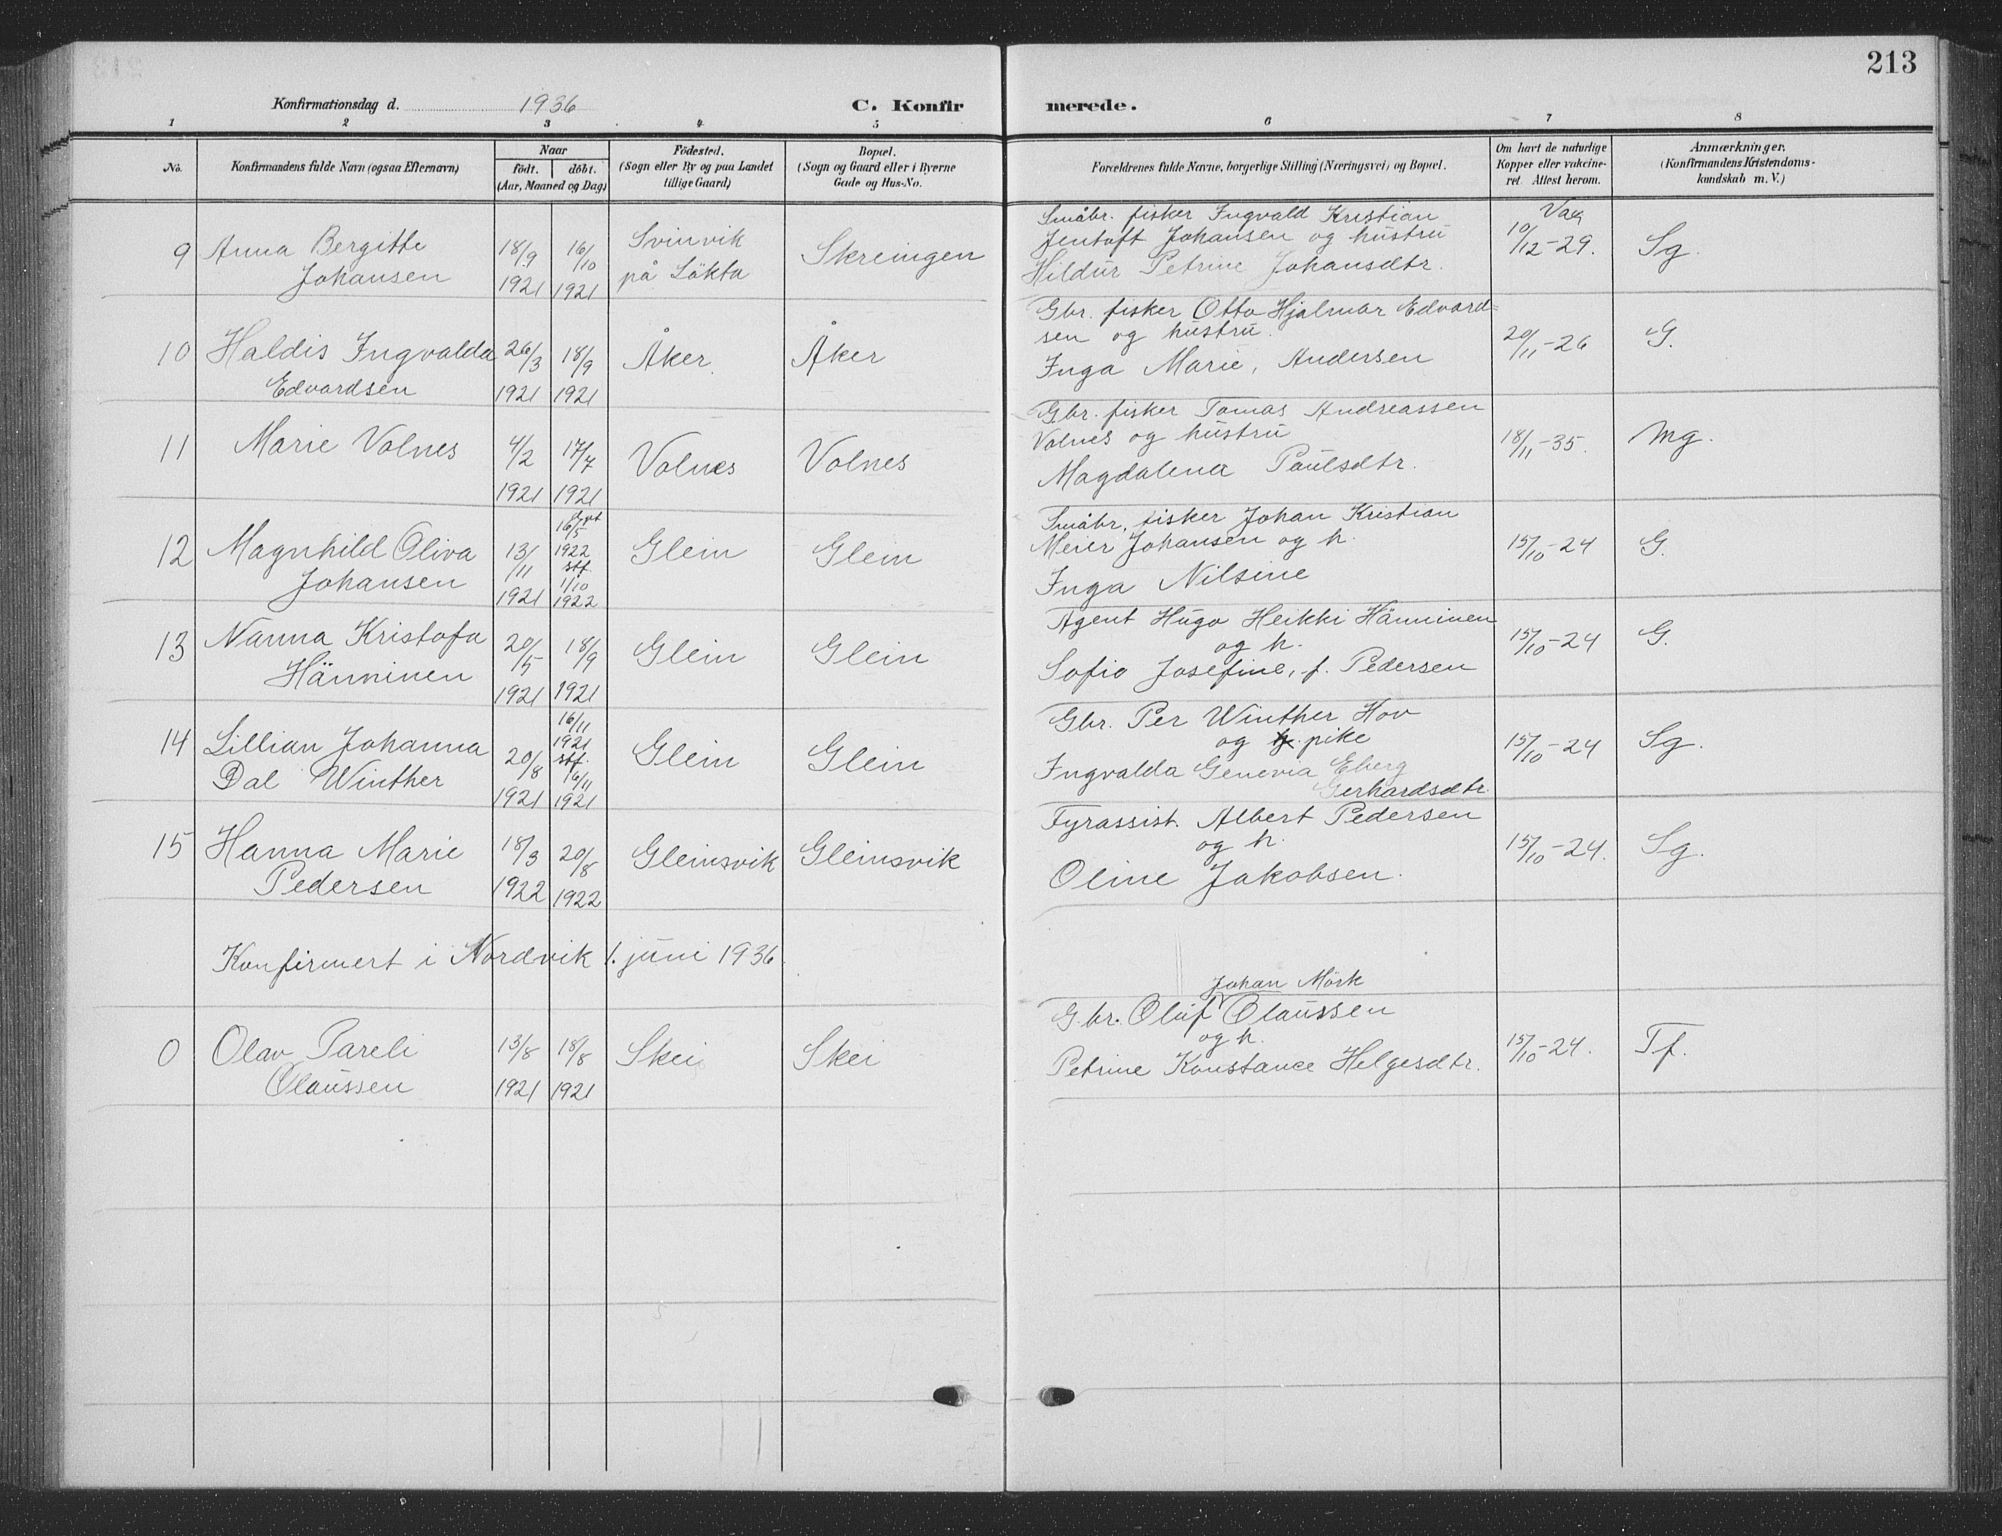 213
Konfirmationsdag d. 1936 C. Konfir merede.
1 2 3 4 5 6 7 8
No. Konfirmandens fulde Navn (ogsaa Efternavn)
Naar
født. døbt.
(Aar, Maaned og Dag)
Fødested.
(Sogn eller By og paa Landet
tillige Gaard)
Bopæl.
(Sogn og Gaard eller i Byerne
Gade og Hus-No.
Forældrenes fulde Navne, borgerlige Stilling (Næringsvei) og Bopæl.
Om havt de naturlige
Kopper eller vakcine-
ret. Attest herom.
Anmærkninger.
(Konfirmandens Kristendoms-
kundskab m. V.)
9 Anna Bergitte
Johansen
18/9
1921
16/10
1921
Svinvik
på Løkta
Skreingen
Småbr. fisker Ingvald Kristian
Jentoft Johansen og hustru
Hildur Petrine Johansdtr.
Vac
10/12-29.
Sg.
10 Haldis Ingvalda
Edvardsen
26/3
1921
18/9
1921
Åker.
Åker
Gbr. fisker Otto Hjalmar Edvard=
sen og hustru.
Inga Marie, Andersen
20/11-26
G.
11 Marie Valnes
4/2
1921
17/7
1921
Valnes
Valnes
Gbr. fisker Tomas Andreassen
Valnes og hustru
Magdalena Paulsdtr.
18/11-35.
Mg.
12 Magnhild Oliva
Johansen
13/11
1921
16/5
1922
stf.
1/10
1922
Glein
Glein
Småbr. fisker Johan Kristian
Meier Johansen og h.
Inga Nilsine
15/10-24
G.
13 Nanna Kristofa
Hänninen
20/5
1921
18/9
1921
Glein
Glein
Agent Hugo Heikki Hänninen
og h.
Sofie Josefine, f. Pedersen
15/10-24
G.
14 Lillian Johanna
Dal Winther
20/8
1921
16/11
1921
stf.
6/11
1921
Glein
Glein
Gbr. Per Winther Hov
og h. pike
Ingvalda Genevia Eberg
Gerhardsdtr.
15/10-24
Sg.
15 Hanna Marie
Pedersen
18/3
1922
20/8
1922
Gleinsvik
Gleinsvik
Fyrassist. Albert Pedersen
og h.
Oline Jakobsen.
15/10-24.
Sg.
Konfirmert i Nordvik 1. juni 1936.
0 Olav Pareli
Olaussen
13/8
1921
18/8
1921
Skei
Skei
Johan Mörk
Gbr. Oluf Olaussen
og h.
Petrine Konstance Helgesdtr.
15/10-24.
Tf.